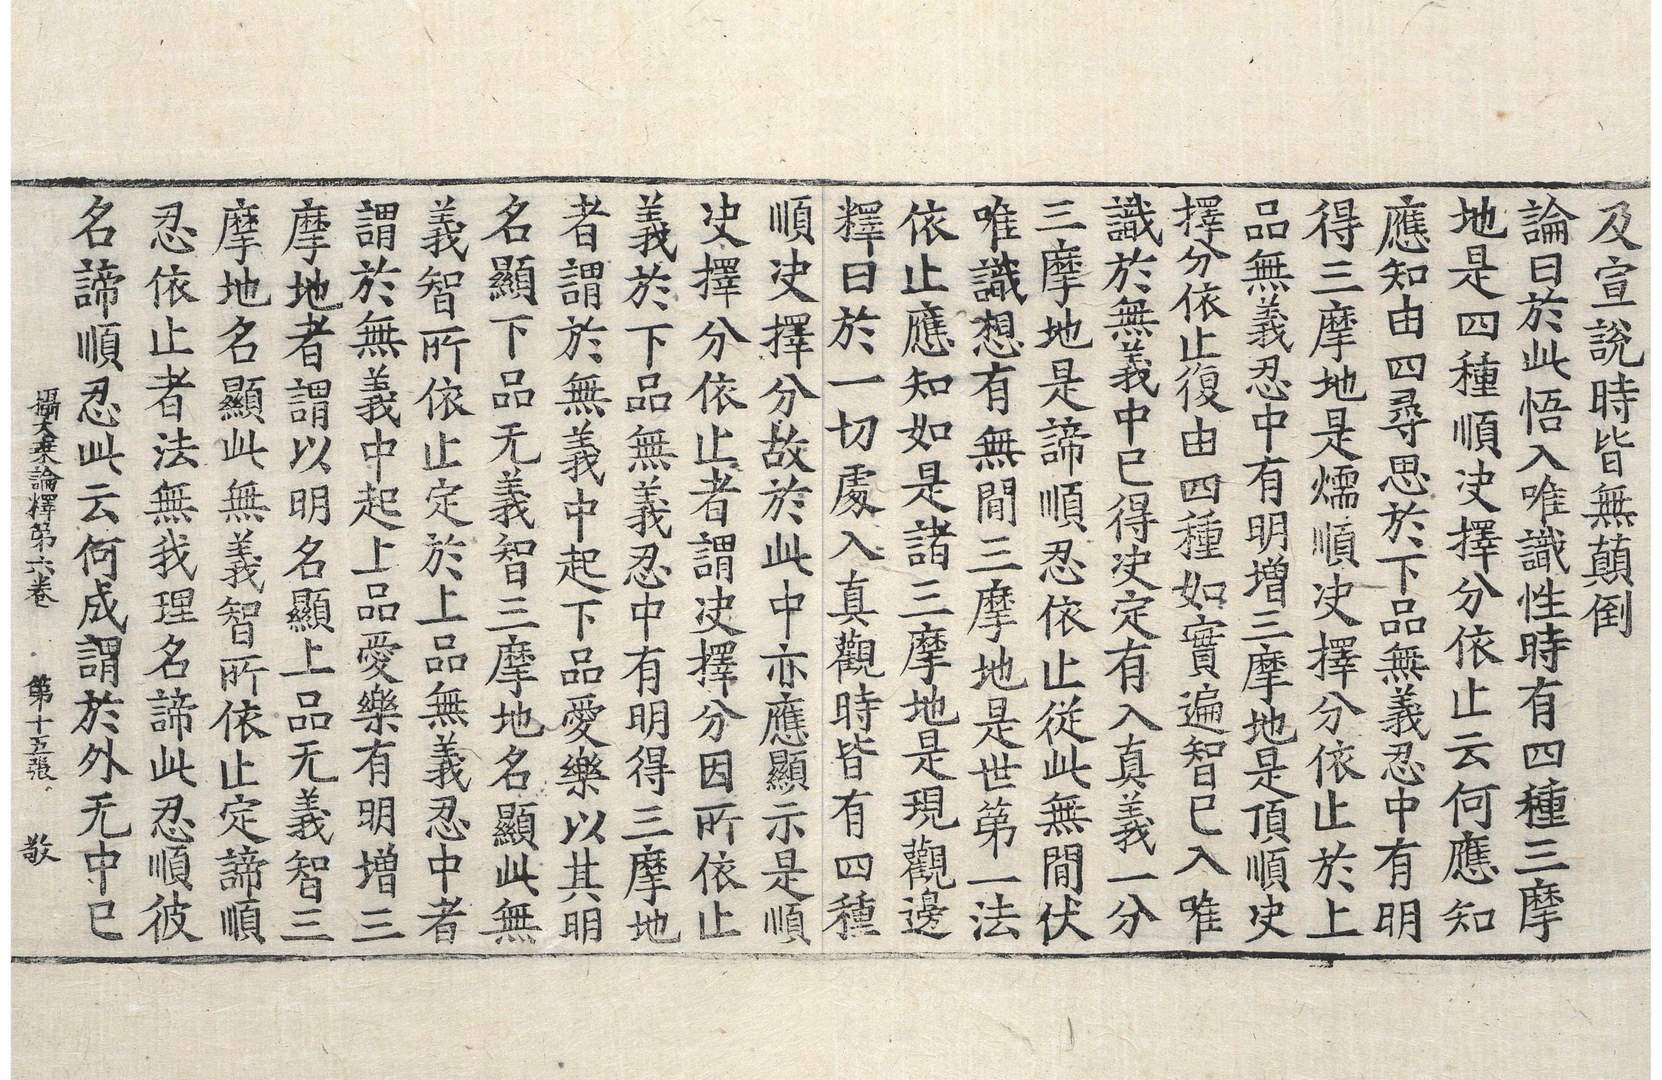 及宣說時皆無顛倒
論曰於此悟入唯識性時有四種三摩
地是四種順决擇分依止云何應知
應知由四尋思於下品無義忍中有明
得三摩地是燸順决擇分依止於上
品無義忍中有明增三摩地是頂順决
擇分依止復由四種如實遍智已入唯
識於無義中已得决定有入真義一分
三摩地是諦順忍依止從此無間伏
唯識想有無間三摩地是世第一法
依止應知如是諸三摩地是現觀邊
釋曰於一切處入真觀時皆有四種
順决擇分故於此中亦應顯示是順
决擇分依止者謂决擇分因所依止
義於下品無義忍中有明得三摩地
者謂於無義中起下品愛樂以其明
名顯下品无義智三摩地名顯此無
義智所依止定於上品無義忍中者
謂於無義中起上品愛樂有明增三
摩地者謂以明名顯上品无義智三
摩地名顯此無義智所依止定諦順
忍依止者法無我理名諦此忍順彼
名諦順忍此云何成謂於外无中已
攝大乗論釋第六卷 第十五張 敬